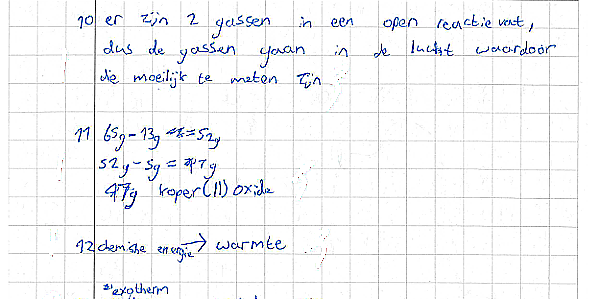 10 er zijn 2 gassen in een open reactievat,
dus de gassen gaan in de lucht waardoor
die moeilijk te meten zijn
11 65g-13g = 52g
52g-5g = 47g
47g koper(II)oxide
12 chemische energie → warmte
exotherm